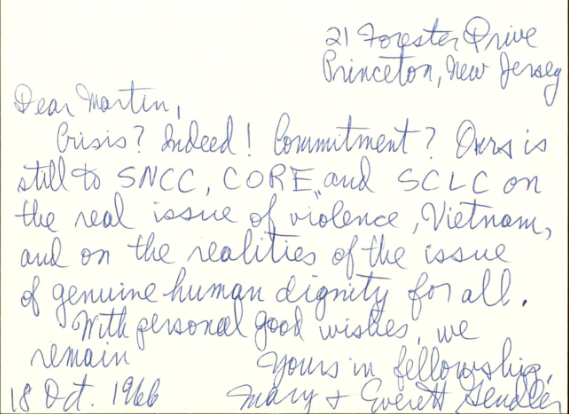 21 Forester Drive
Princeton, New Jersey
Dear Martin,
Crisis? Indeed! Commitment? Ours is
still to SNCC, CORE, and SCLC on
the real issue of violence, Vietnam,
and on the realities of the issue
of genuine human dignity for all.
With personal good wishes, we
remain
Yours in fellowship,
18 Oct. 1966
Mary & Everett Gendler